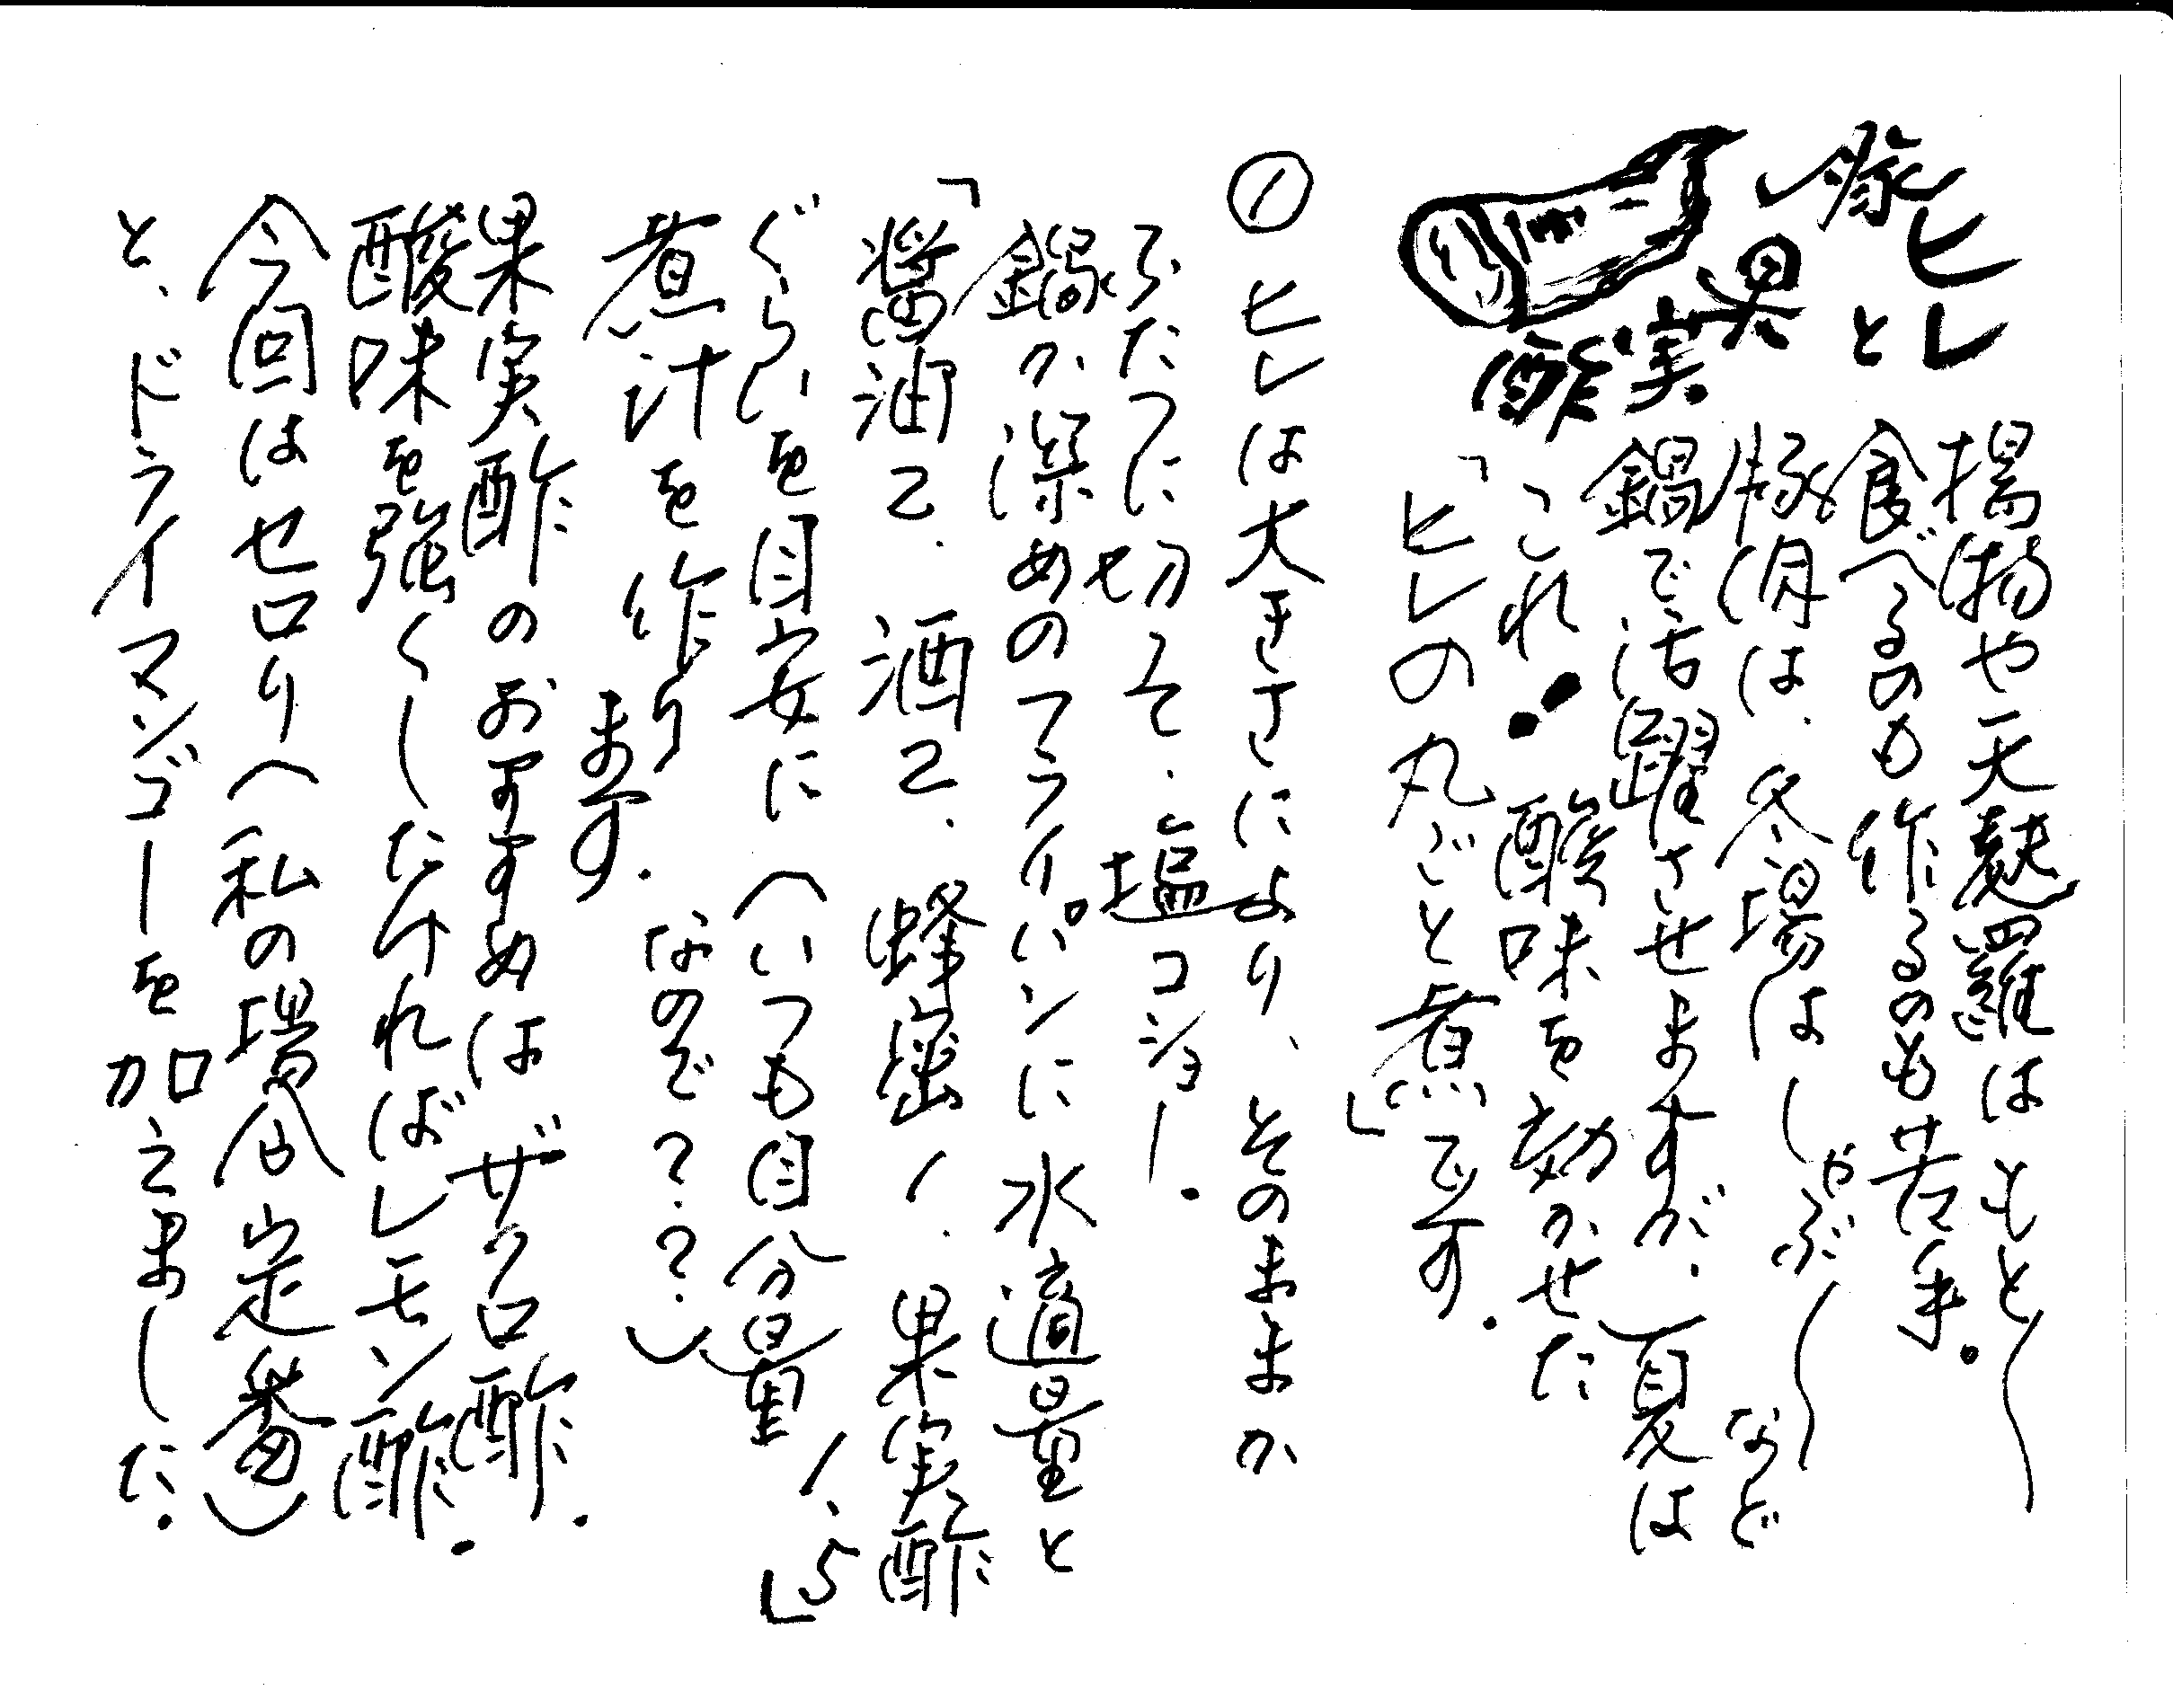 豚ヒレと
果実酢
揚物や天麩羅はもと〱
食べるのも作るのも苦手。
豚肉は、冬場はしゃぶ〱など
鍋で活躍させますが、夏は
これ! 酸味を効かせた
「ヒレの丸ごと煮」です。
① ヒレは大きさにより、そのままか
ふたつに切って、塩コショー。
鍋か深めのフライパンに水適量と
「醤油2、酒2、蜂蜜1、果実酢1、5」
ぐらいを目安に(いつも目分量
なので??)
煮汁を作ります。
果実酢のおすすめはザクロ酢。
酸味を強くしたければレモン酢。
今回はセロリ(私の場合定番)
と、ドライマンゴーを加えました。